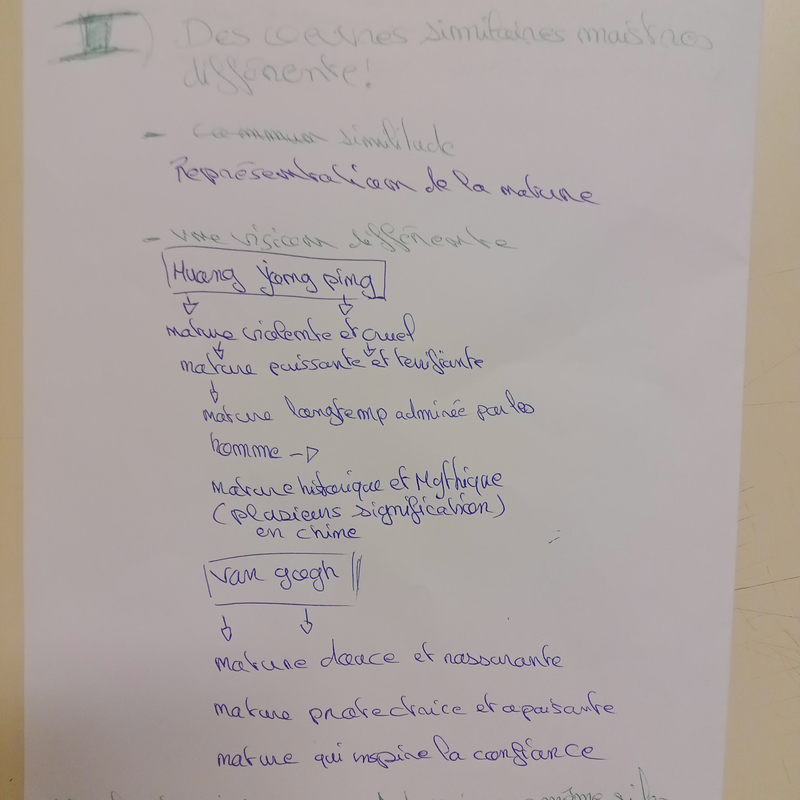 II) Des oeuvres similaires mais tres
différente!
- commun similitude
Représentation de la nature
- une vision différente
Huang yong ping
nature violente et cruel
nature puissante et terrifiante
nature longtemp admirée par les
homme ->
nature historique et Mythique
(plusieurs signification)
en chine
Van gogh
nature douce et rassurante
nature protectrice et apaisante
nature qui inspire la confiance
même si